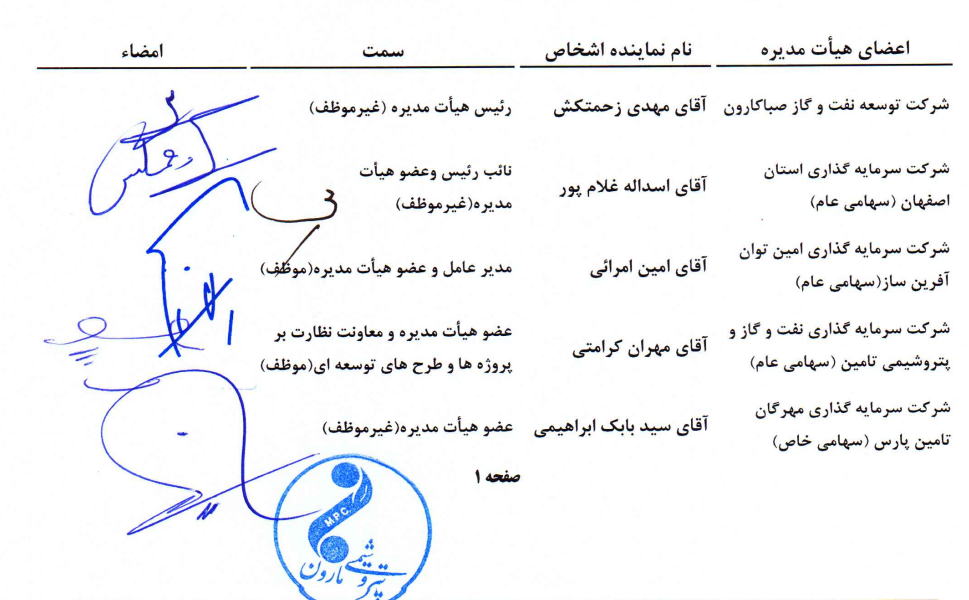 اعضای هیأت مدیره نام نماینده اشخاص سمت امضاء
شرکت توسعه نفت و گاز صباکارون آقای مهدی زحمتکش رئیس هیأت مدیره (غیرموظف)
شرکت سرمایه گذاری استان
اصفهان (سهامی عام)
آقای اسداله غلام پور
نائب رئیس وعضو هیأت
مدیره(غیرموظف)
شرکت سرمایه گذاری امین توان
آفرین ساز(سهامی عام)
آقای امین امرائی
مدیر عامل و عضو هیأت مدیره(موظف)
شرکت سرمایه گذاری نفت و گاز و
پتروشیمی تامین (سهامی عام)
آقای مهران کرامتی
عضو هیأت مدیره و معاونت نظارت بر
پروژه ها و طرح های توسعه ای(موظف)
شرکت سرمایه گذاری مهرگان
تامین پارس (سهامی خاص)
آقای سید بابک ابراهیمی
عضو هیأت مدیره(غیرموظف)
صفحه ۱
M.P.C.
پتروشیمی مارون